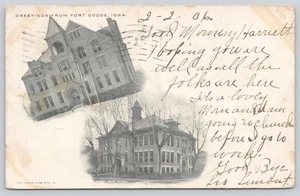 GREETINGS FROM FORT DODGE, IOWA.
2-2-06.
Good Morning Harriett
hoping you are
well as all the
folks are here
Its a lovely
morning am
going to church
before I go to
work.
Good Bye